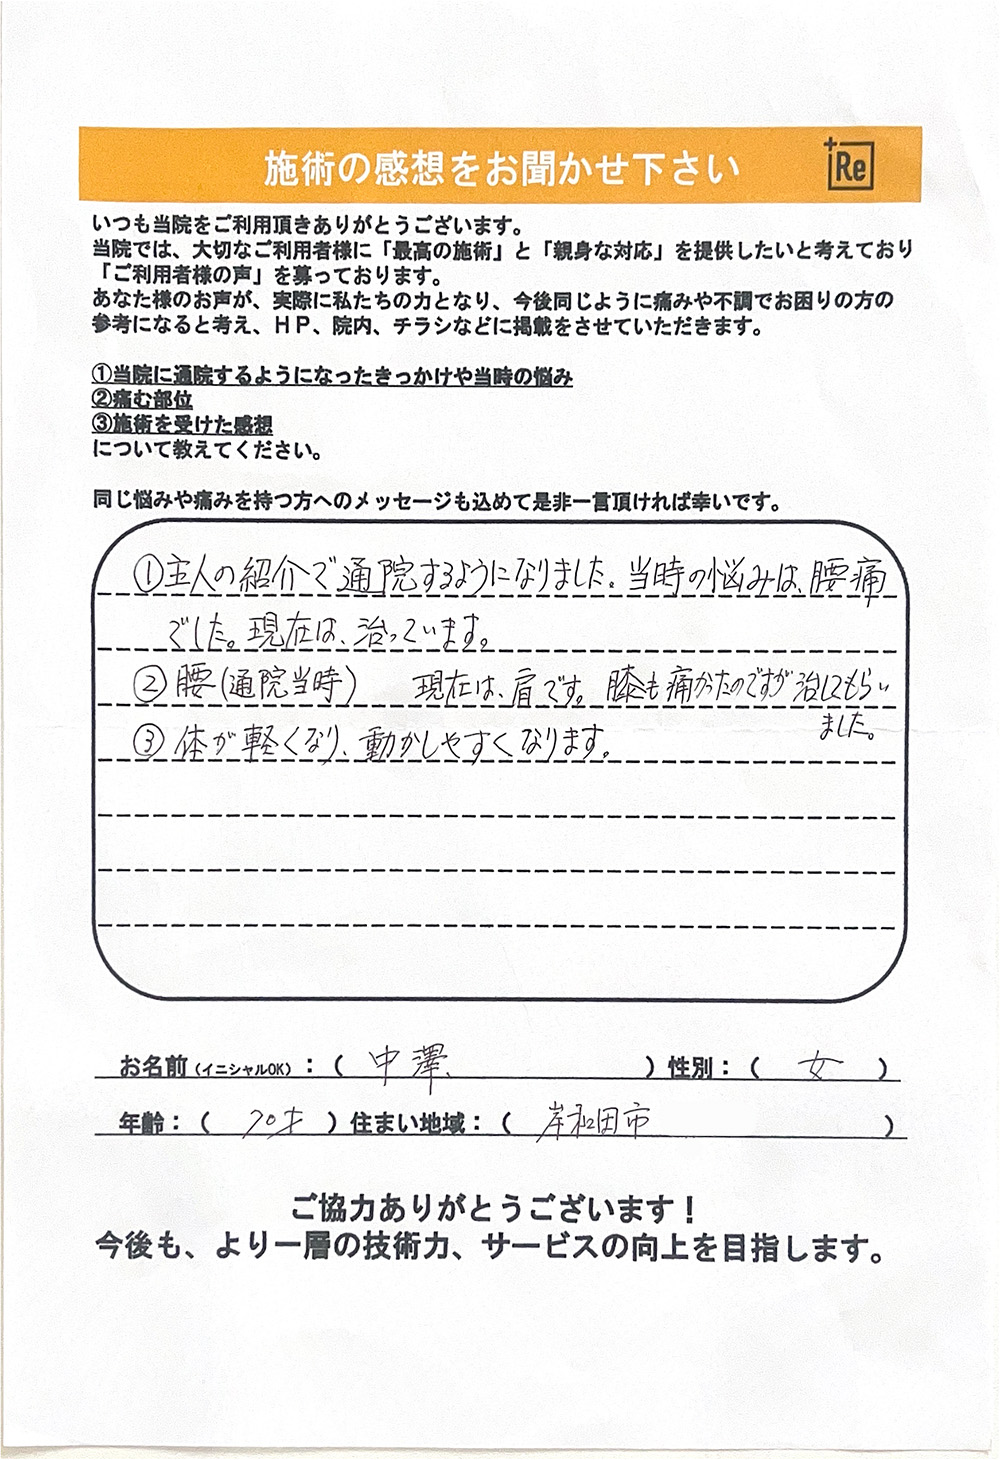 施術の感想をお聞かせ下さい
+Re
いつも当院をご利用頂きありがとうございます。
当院では、大切なご利用者様に「最高の施術」と「親身な対応」を提供したいと考えており
「ご利用者様の声」を募っております。
あなた様のお声が、実際に私たちの力となり、今後同じように痛みや不調でお困りの方の
参考になると考え、HP、院内、チラシなどに掲載をさせていただきます。
①当院に通院するようになったきっかけや当時の悩み
②痛む部位
③施術を受けた感想
について教えてください。
同じ悩みや痛みを持つ方へのメッセージも込めて是非一言頂ければ幸いです。
①主人の紹介で通院するようになりました。当時の悩みは、腰痛
でした。現在は、治っています。
②腰(通院当時) 現在は、肩です。膝も痛かったのですが治してもらい
ました。
③体が軽くなり、動かしやすくなります。
お名前(イニシャルOK):( 中澤 )性別:( 女 )
年齢:( 70才 )住まい地域:( 岸和田市 )
ご協力ありがとうございます!
今後も、より一層の技術力、サービスの向上を目指します。